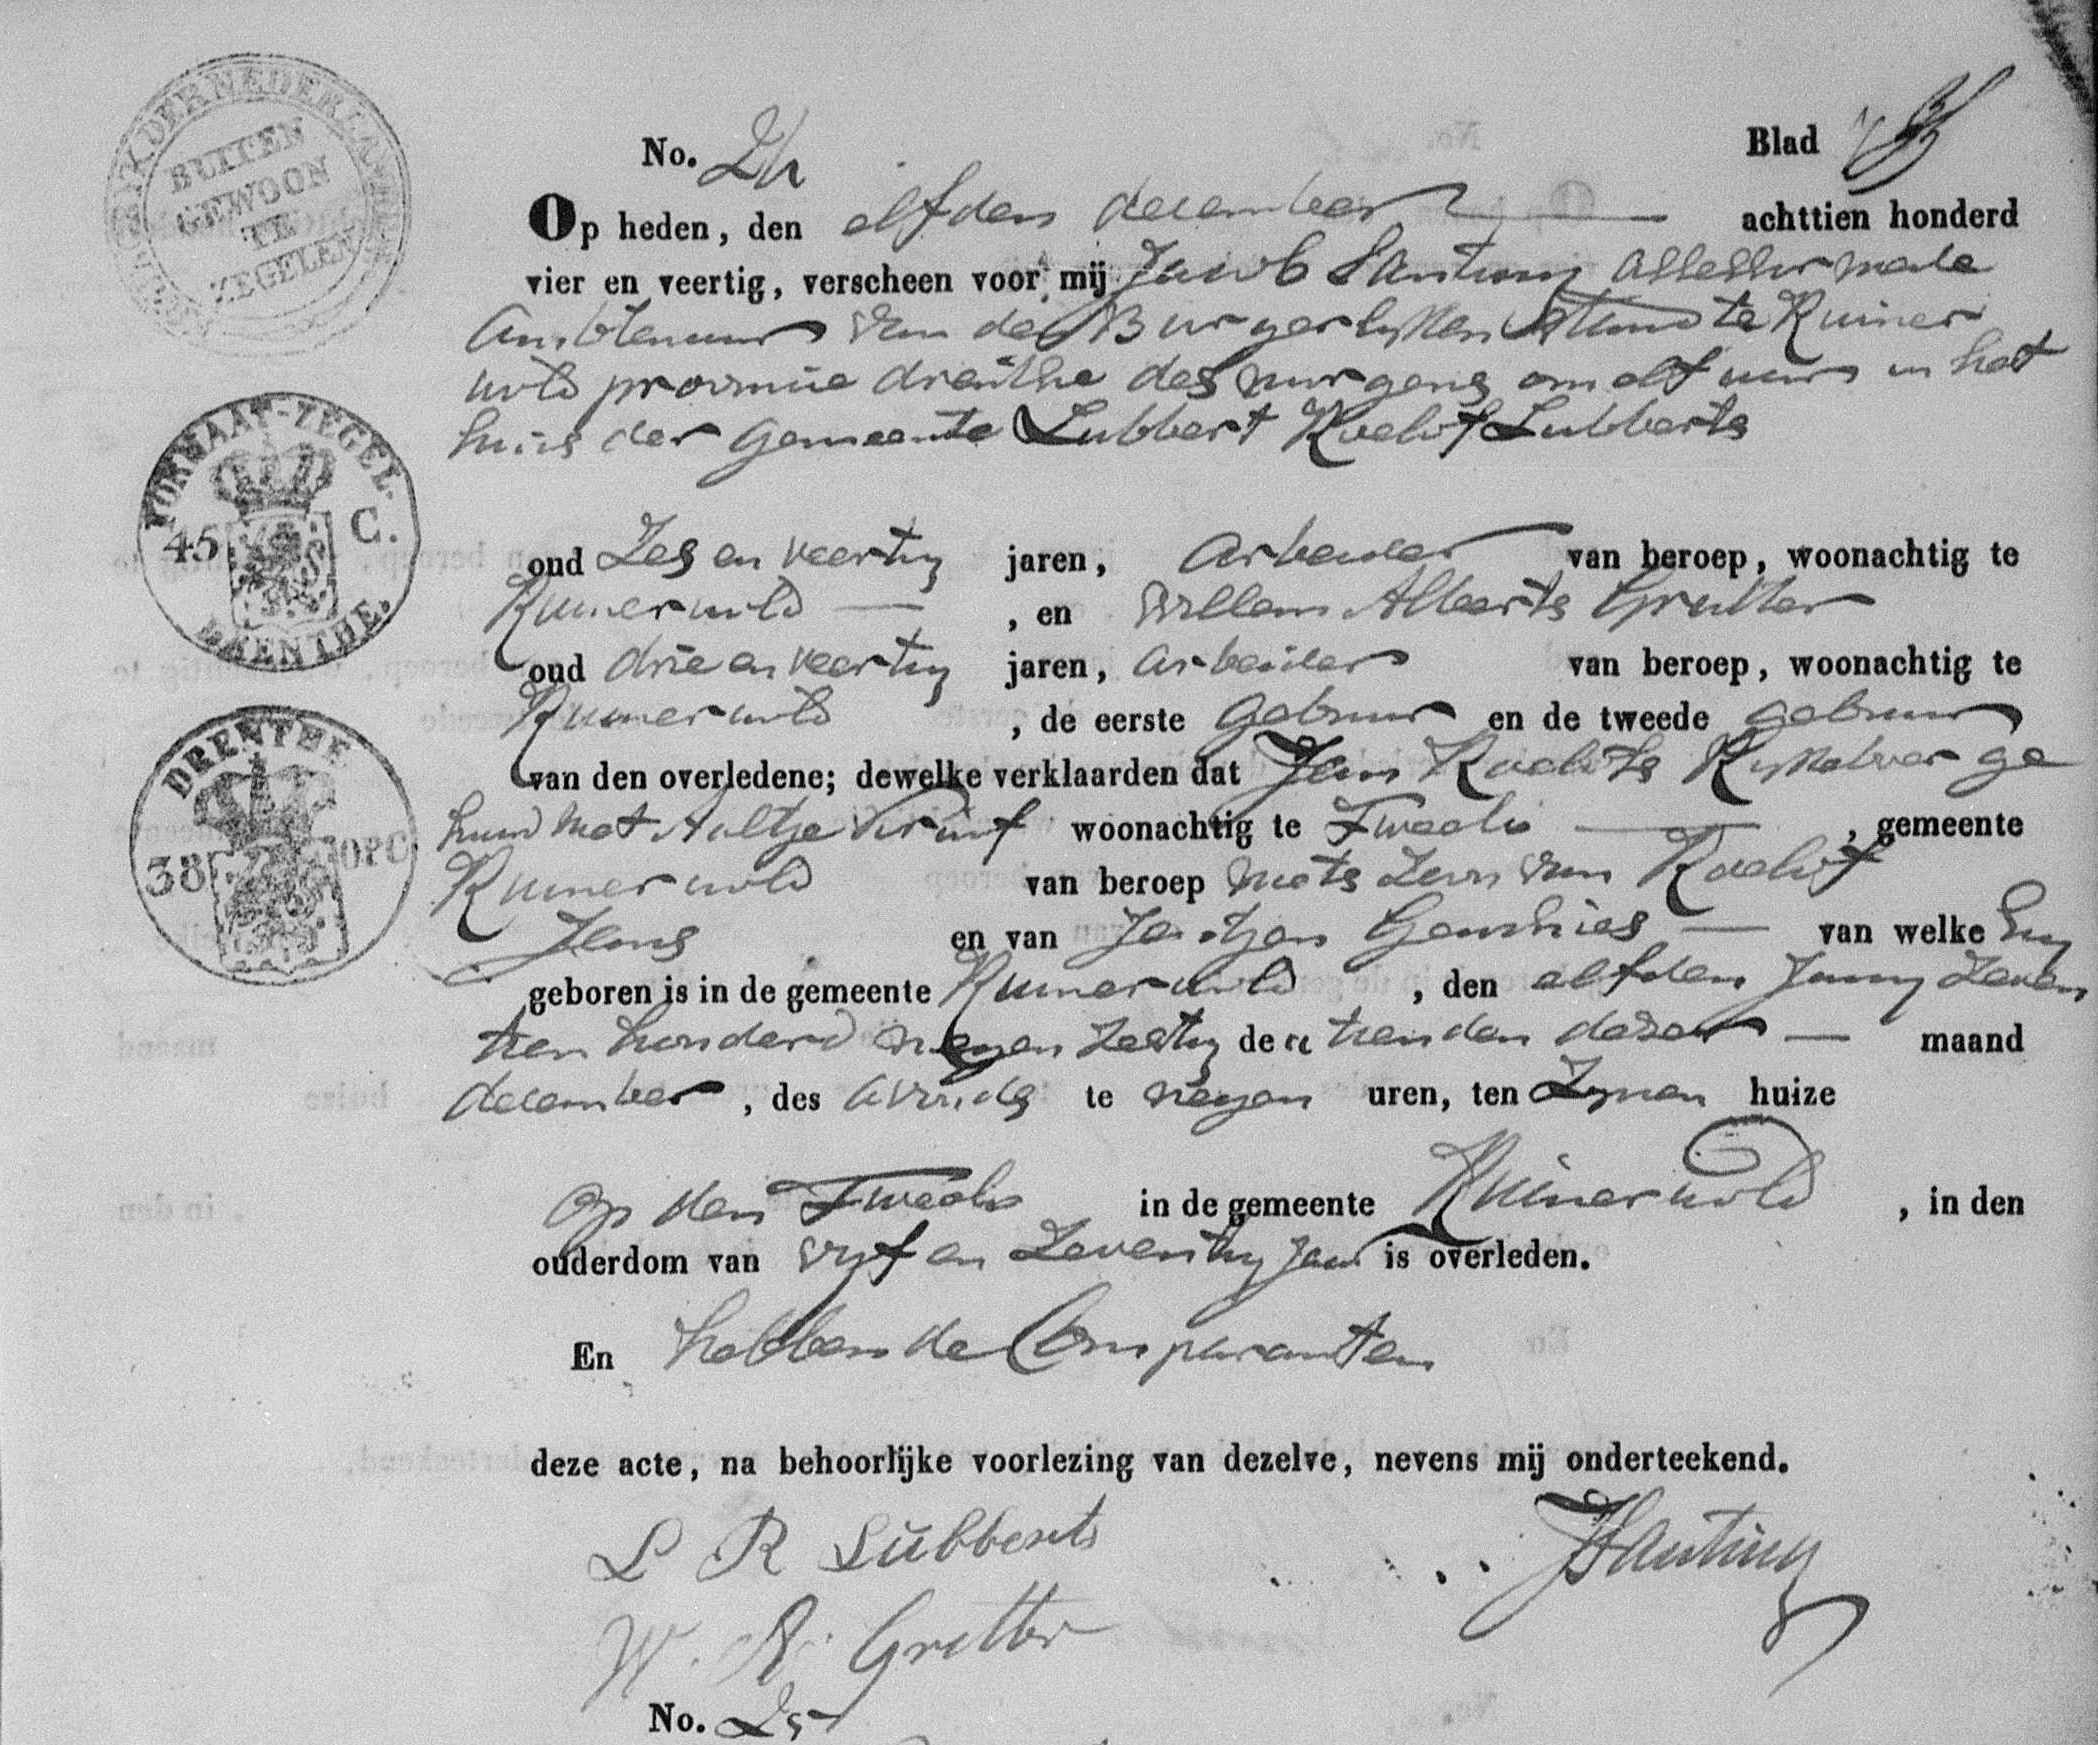 KONINGRIJK DER NEDERLANDEN
BUITEN
GEWOON
TE
ZEGELEN
No. 24 Blad
Op heden, den elfden december achttien honderd
vier en veertig, verscheen voor mij Jacob Santing assessor mede
Ambtenaar van den Burgerlyken Stand te Ruiner
wold provincie drenthe des morgens om elf uur in het
huis der Gemeente Lubbert Roelof Lubberts
FORMAAT-ZEGEL.
45 C.
DRENTHE.
oud Zes en veertig jaren, arbeider van beroep, woonachtig te
Ruinerwold , en Willem Alberts Gritter
oud drie en veertig jaren, arbeider van beroep, woonachtig te
Ruinerwold , de eerste gebuur en de tweede gebuur
DRENTHE
38 OPC
van den overledene; dewelke verklaarden dat Jan Roelofs Rykelver ge
huwd met Aaltje woonachtig te Tweelo , gemeente
Ruinerwold van beroep Zoon van Roelof
Jans en van Jantjen van welke hy
geboren is in de gemeente Ruinerwold , den elfden Juny Zeven
tien honderd negen Zestig den tienden dezer maand
december , des avonds te negen uren, ten Zynen huize
op den Tweelo in de gemeente Ruinerwold , in den
ouderdom van vyf en Zeventig Jaar is overleden.
En hebben de Comparanten
deze acte, na behoorlijke voorlezing van dezelve, nevens mij onderteekend.
L R Lubberts JSanting
W. A. Gritter
No. 25